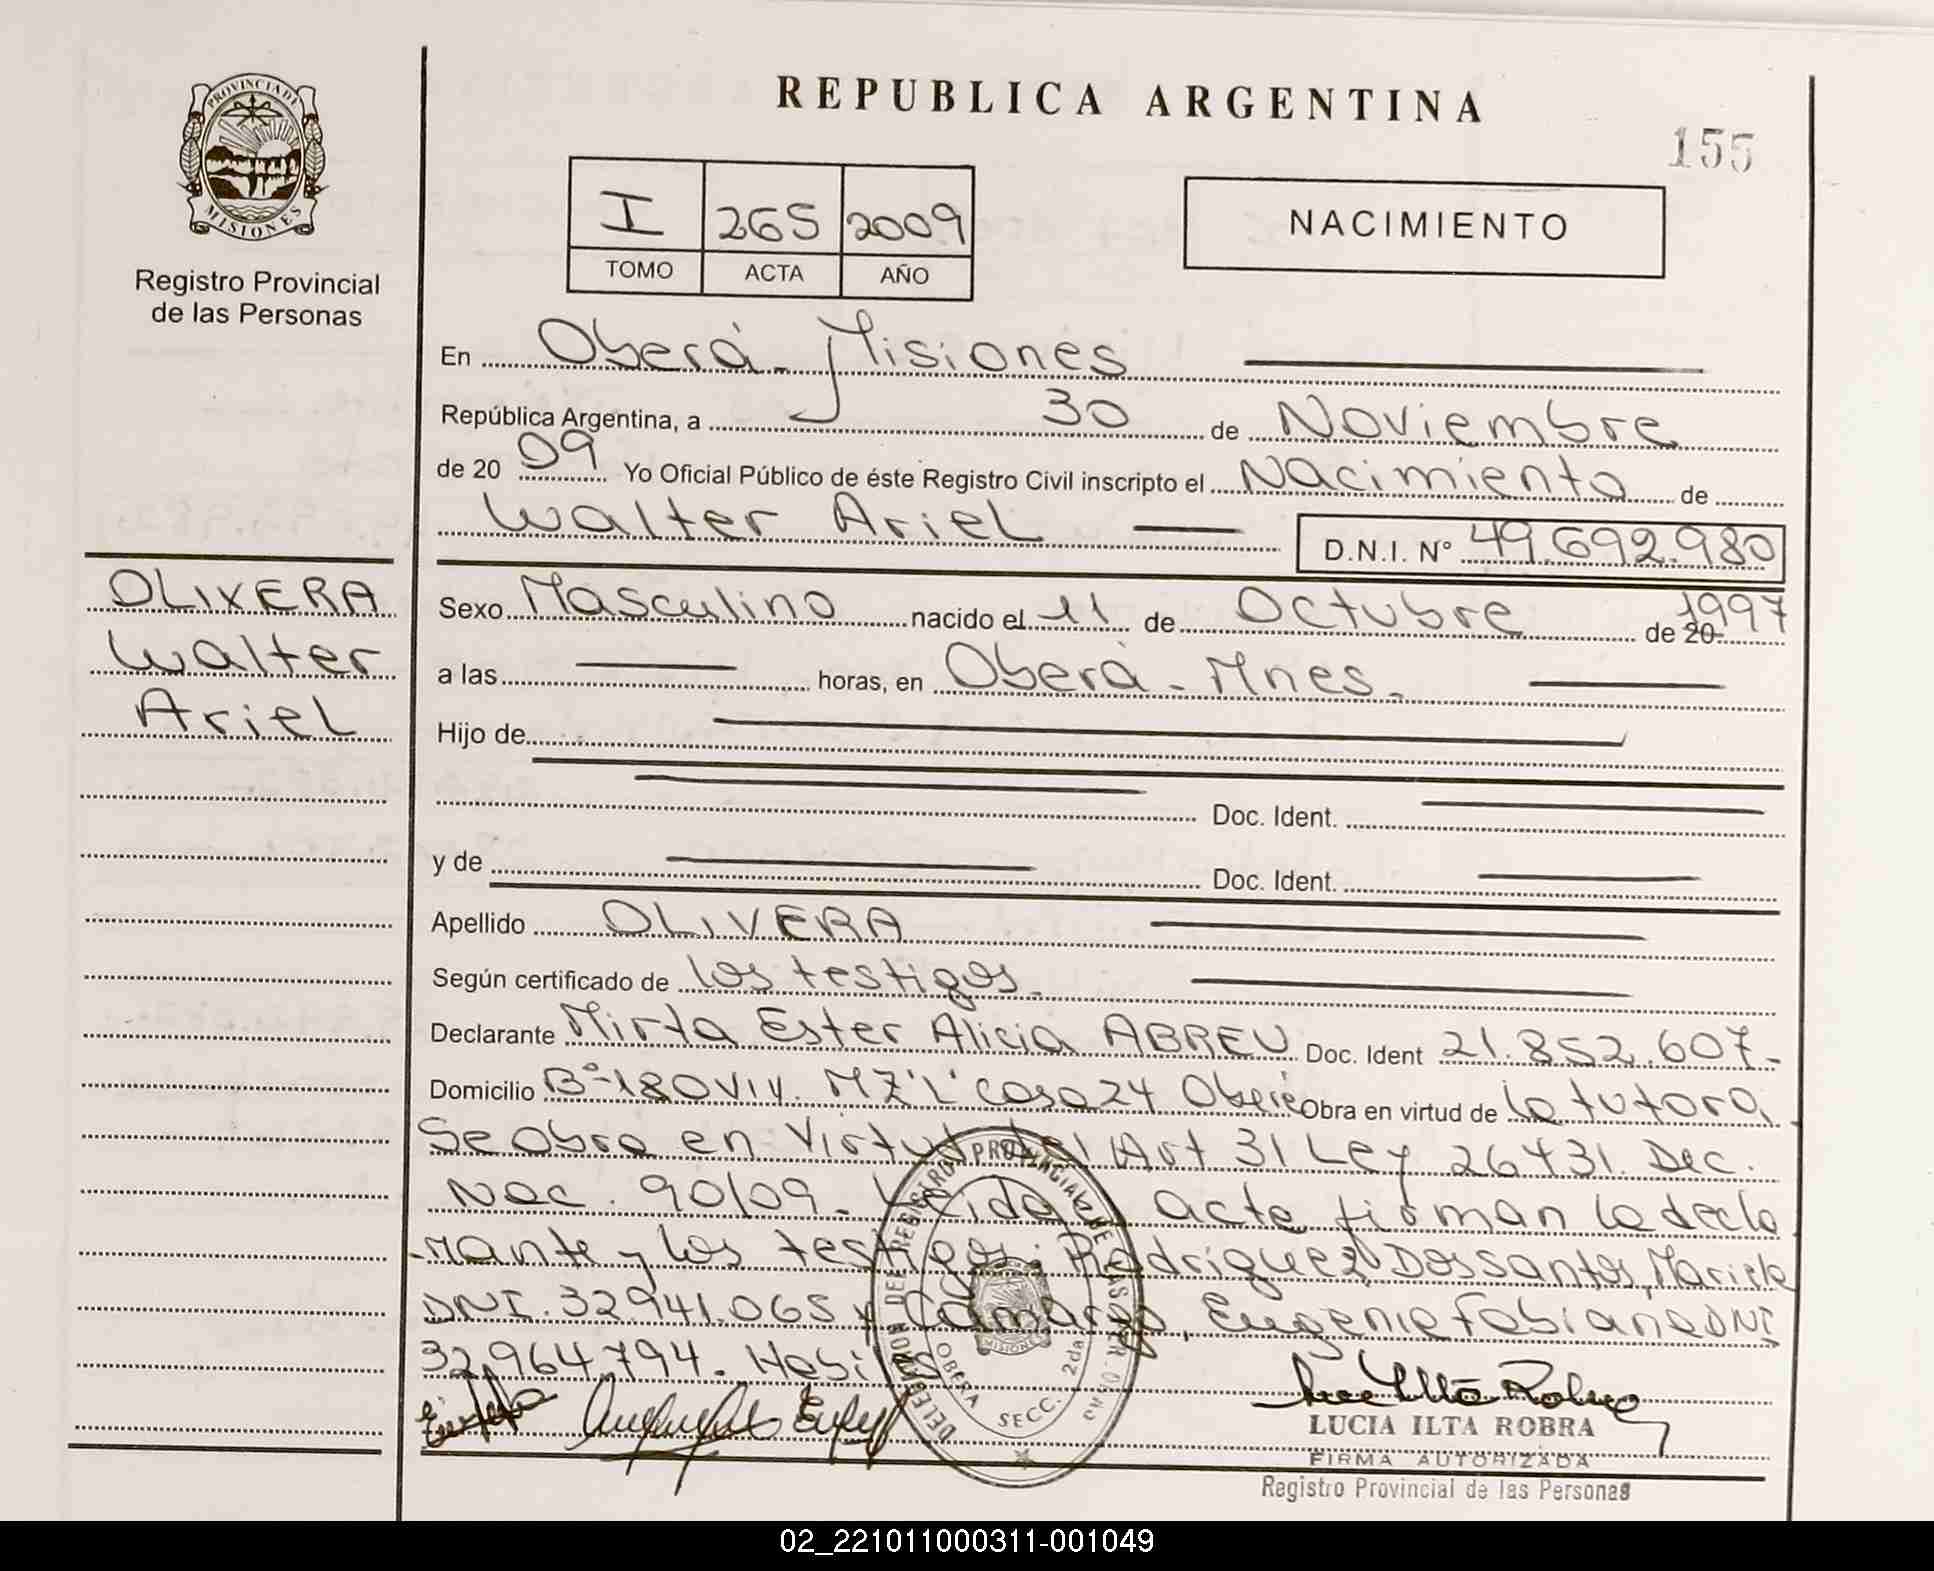 REPUBLICA ARGENTINA
155
PROVINCIA DE MISIONES
Registro Provincial
de las Personas
I 265 2009
TOMO ACTA AÑO
NACIMIENTO
En Oberá - Misiones
República Argentina, a 30 de Noviembre
de 20 09 Yo Oficial Público de éste Registro Civil inscripto el Nacimiento de
Walter Ariel
D.N.I. Nº 49.692.980
OLIVERA
Walter
Ariel
Sexo Masculino nacido el 11 de Octubre de 20 1997
a las horas, en Oberá - Mnes.
Hijo de
Doc. Ident.
y de Doc. Ident.
Apellido OLIVERA
Según certificado de los testigos.
Declarante Mirta Ester Alicia ABREU Doc. Ident 21.852.607.
Domicilio Bº 180 Viv. MZ'L' Casa 24 Oberá Obra en virtud de la tutora.
Se obra en Virtud del Art 31 Ley 26431. Dec.
Nac. 90/09. Leida el acta firman la decla
-rante y los testigos: Rodriguez Dossantos, Mariela
DNI. 32.941.065 y Camargo, Eugenia Fabiana DNI
32.964.794.
DELEGACION DEL REGISTRO PROVINCIAL DE LAS PER.
OBERA SECC. 2da
MISIONES
LUCIA ILTA ROBRA
FIRMA AUTORIZADA
Registro Provincial de las Personas
02_221011000311-001049